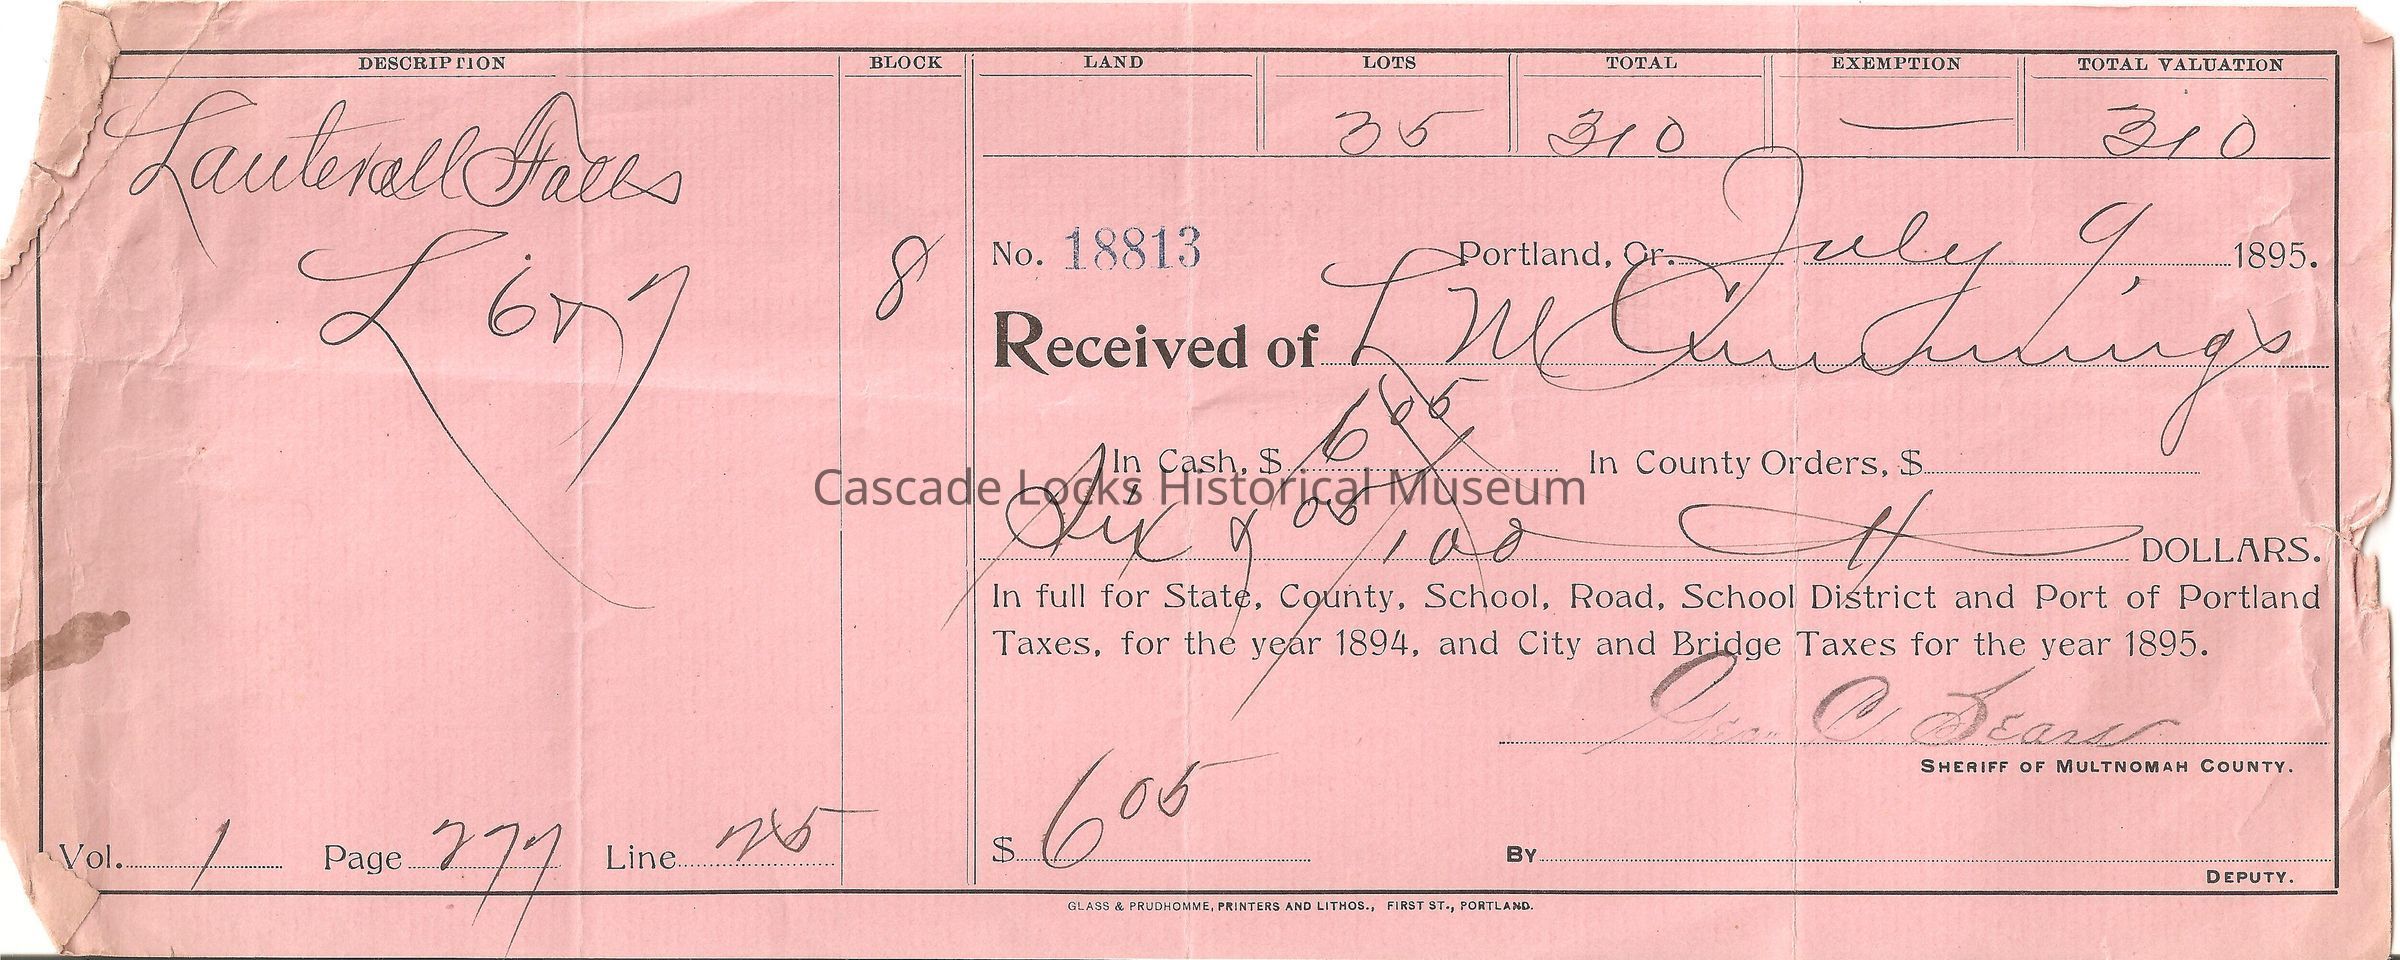 DESCRIPTION BLOCK LAND LOTS TOTAL EXEMPTION TOTAL VALUATION
35 310 — 310
Lauterell Falls
L 6 & 7 8
No. 18813 Portland, Or. July 9, 1895.
Received of L M Cummings
In Cash, $ 6 05 In County Orders, $
Cascade Locks Historical Museum
Six & 05/100 DOLLARS.
In full for State, County, School, Road, School District and Port of Portland
Taxes, for the year 1894, and City and Bridge Taxes for the year 1895.
Geo. C Sears
SHERIFF OF MULTNOMAH COUNTY.
Vol. 1 Page 277 Line 25 $ 6 05 By
DEPUTY.
GLASS & PRUDHOMME, PRINTERS AND LITHOS., FIRST ST., PORTLAND.